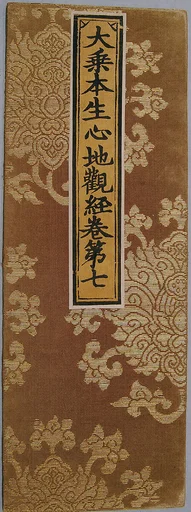 大乘本生心地觀經卷第七